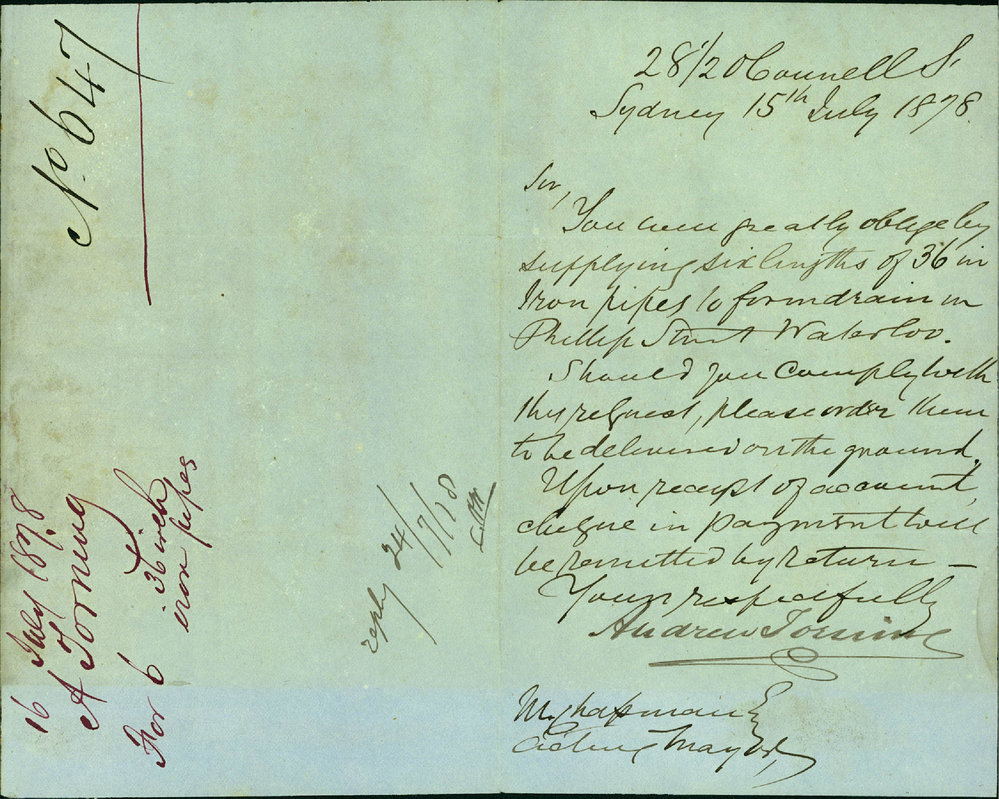 No 647
16 July 1878
A Torning
For 6 - 36 inch
iron pipes
reply 24/7/78
28 1/2 O'Connell St
Sydney 15th July 1878.
Sir,
You will greatly oblige by
supplying six lengths of 36 in
Iron pipes to form drain in
Phillip Street Waterloo.
Should you comply with
this request, please order them
to be delivered on the ground.
Upon receipt of account,
cheque in payment will
be remitted by return -
Yours respectfully
Andrew Torning
M. Chapman Esq
Acting Mayor,